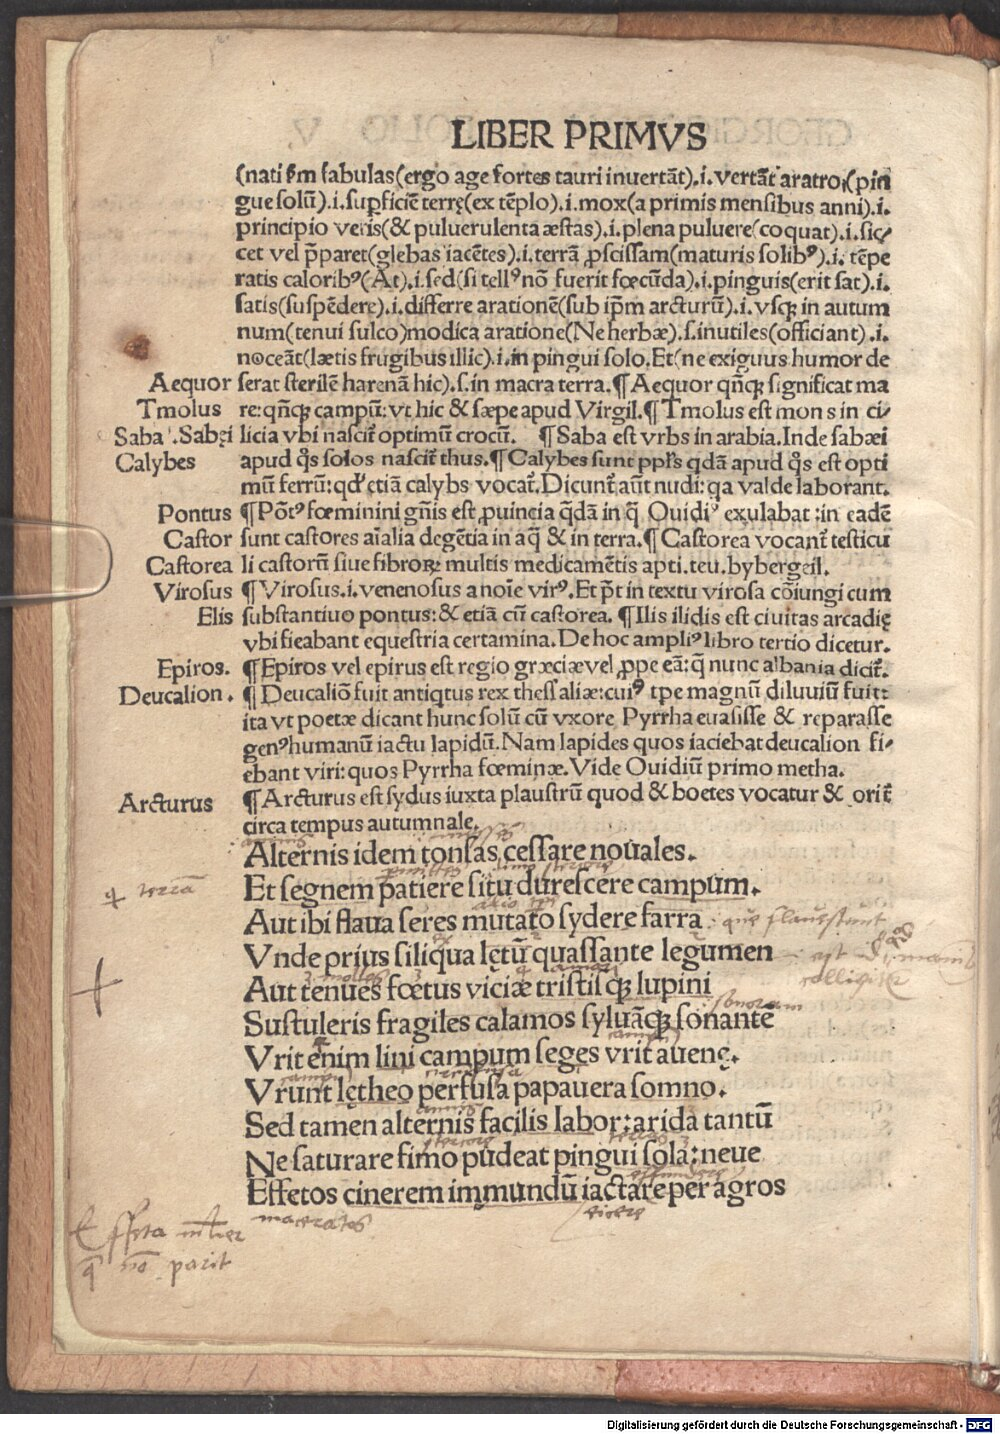 LIBER PRIMVS
(nati ẜm fabulas(ergo age fortes tauri inuertāt).i.vertāt aratro,(pin
gue solū).i.supficiē terrę(ex tēplo).i.mox(a primis mensibus anni).i.
principio veris(& puluerulenta æstas).i.plena puluere(coquat).i.sic⸗
cet vel p̄paret(glebas iacētes).i.terrā ꝓscissam(maturis solibꝰ).i.tēpe
ratis caloribꝰ(At).i.sed(si tellꝰ nō fuerit fœcūda).i.pinguis(erit sat).i.
satis(suspēdere).i.differre arationē(sub ip̄m arcturū).i.vsqꝫ in autum
num(tenui sulco)modica aratione(Ne herbæ).s.inutiles(officiant).i.
noceāt(lætis frugibus illic).i.in pingui solo.Et(ne exiguus humor de
Aequor serat sterilē harenā hic).s.in macra terra.¶Aequor qn̄qꝫ significat ma
Tmolus re:qn̄qꝫ campū:vt hic & sæpe apud Virgil.¶Tmolus est mons in ci⸗
Saba.Sabęi licia vbi nascit̄ optimū crocū. ¶Saba est vrbs in arabia.Inde sabæi
Calybes apud q̊s solos nascit̄ thus.¶Calybes sunt ppl̄s qdā apud q̊s est opti
mū ferrū:qd' etiā calybs vocat̄.Dicunt̄ aūt nudi:qa valde laborant.
Pontus ¶Pōtꝰ fœminini gn̄is est ꝓuincia q̄dā in q̄ Ouidiꝰ exulabat:in eadē
Castor sunt castores aīalia degētia in aq̄ & in terra.¶Castorea vocant̄ testicu
Castorea li castorū siue fibroꝝ multis medicamētis apti.teu.bybergeil.
Virosus ¶Virosus.i.venenosus a noīe virꝰ.Et p̄t in textu virosa cōiungi cum
Elis substantiuo pontus:& etiā cū castorea. ¶Ilis ilidis est ciuitas arcadię
vbi fieabant equestria certamina.De hoc ampliꝰ libro tertio dicetur.
Epiros. ¶Epiros vel epirus est regio græciæ vel ꝓppe eā:q̄ nunc albania dicit̄.
Deucalion. ¶Deucaliō fuit antiqtus rex thessaliæ:cuiꝰ tpe magnū diluuiū fuit:
ita vt poetæ dicant hunc solū cū vxore Pyrrha euasisse & reparasse
genꝰ humanū iactu lapidū.Nam lapides quos iaciebat deucalion fi⸗
ebant viri:quos Pyrrha fœminæ.Vide Ouidiū primo metha.
Arcturus ¶Arcturus est sydus iuxta plaustrū quod & boetes vocatur & orit̄
circa tempus autumnale.
Alternis idem tonsas cessare nouales.
Et segnem patiere situ durescere campum.
q̄ terrā
Aut ibi flaua seres mutato sydere farra
que flauescunt
Vnde prius siliqua lętū quassante legumen
Aut tenues fœtus viciæ tristisqꝫ lupini
Sustuleris fragiles calamos syluāqꝫ sonantē
sonoram
Vrit enim lini campum seges vrit auenę.
Vrunt lętheo perfusa papauera somno.
Sed tamen alternis facilis labor:arida tantū
Ne saturare fimo pudeat pingui sola:neue
Effetos cinerem immundū iactare per agros
maceratos
Effeta mlier
q̄ nō parit
Digitalisierung gefördert durch die Deutsche Forschungsgemeinschaft - DFG